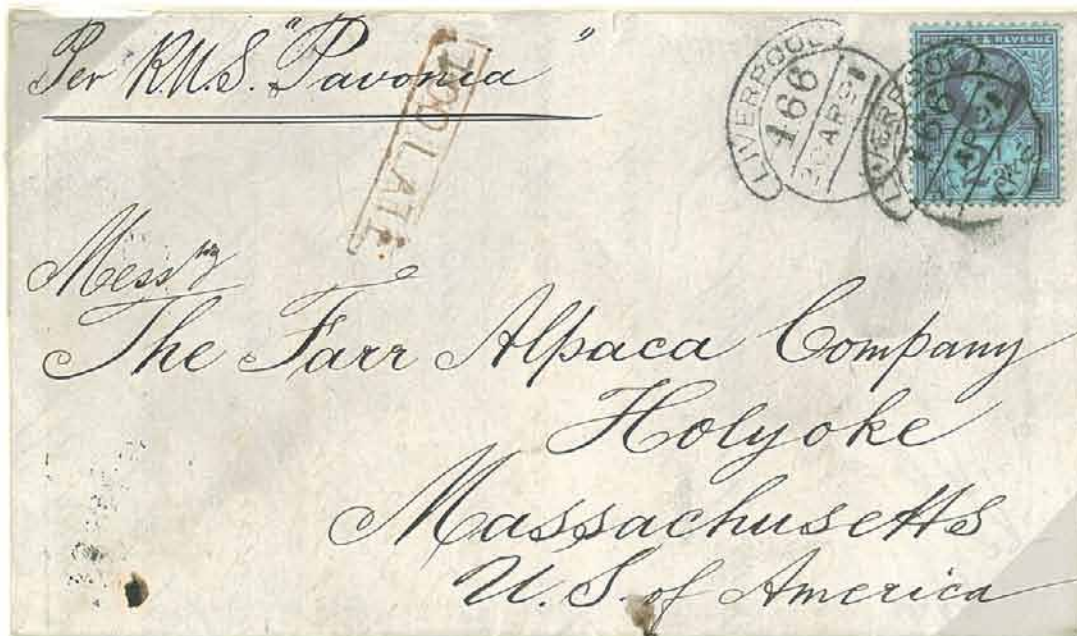 Per R.M.S. "Pavonia"
TOO LATE
LIVERPOOL
166
AP 9
LIVERPOOL
166
& REVENUE
Messrs
The Farr Alpaca Company
Holyoke
Massachusetts
U.S. of America